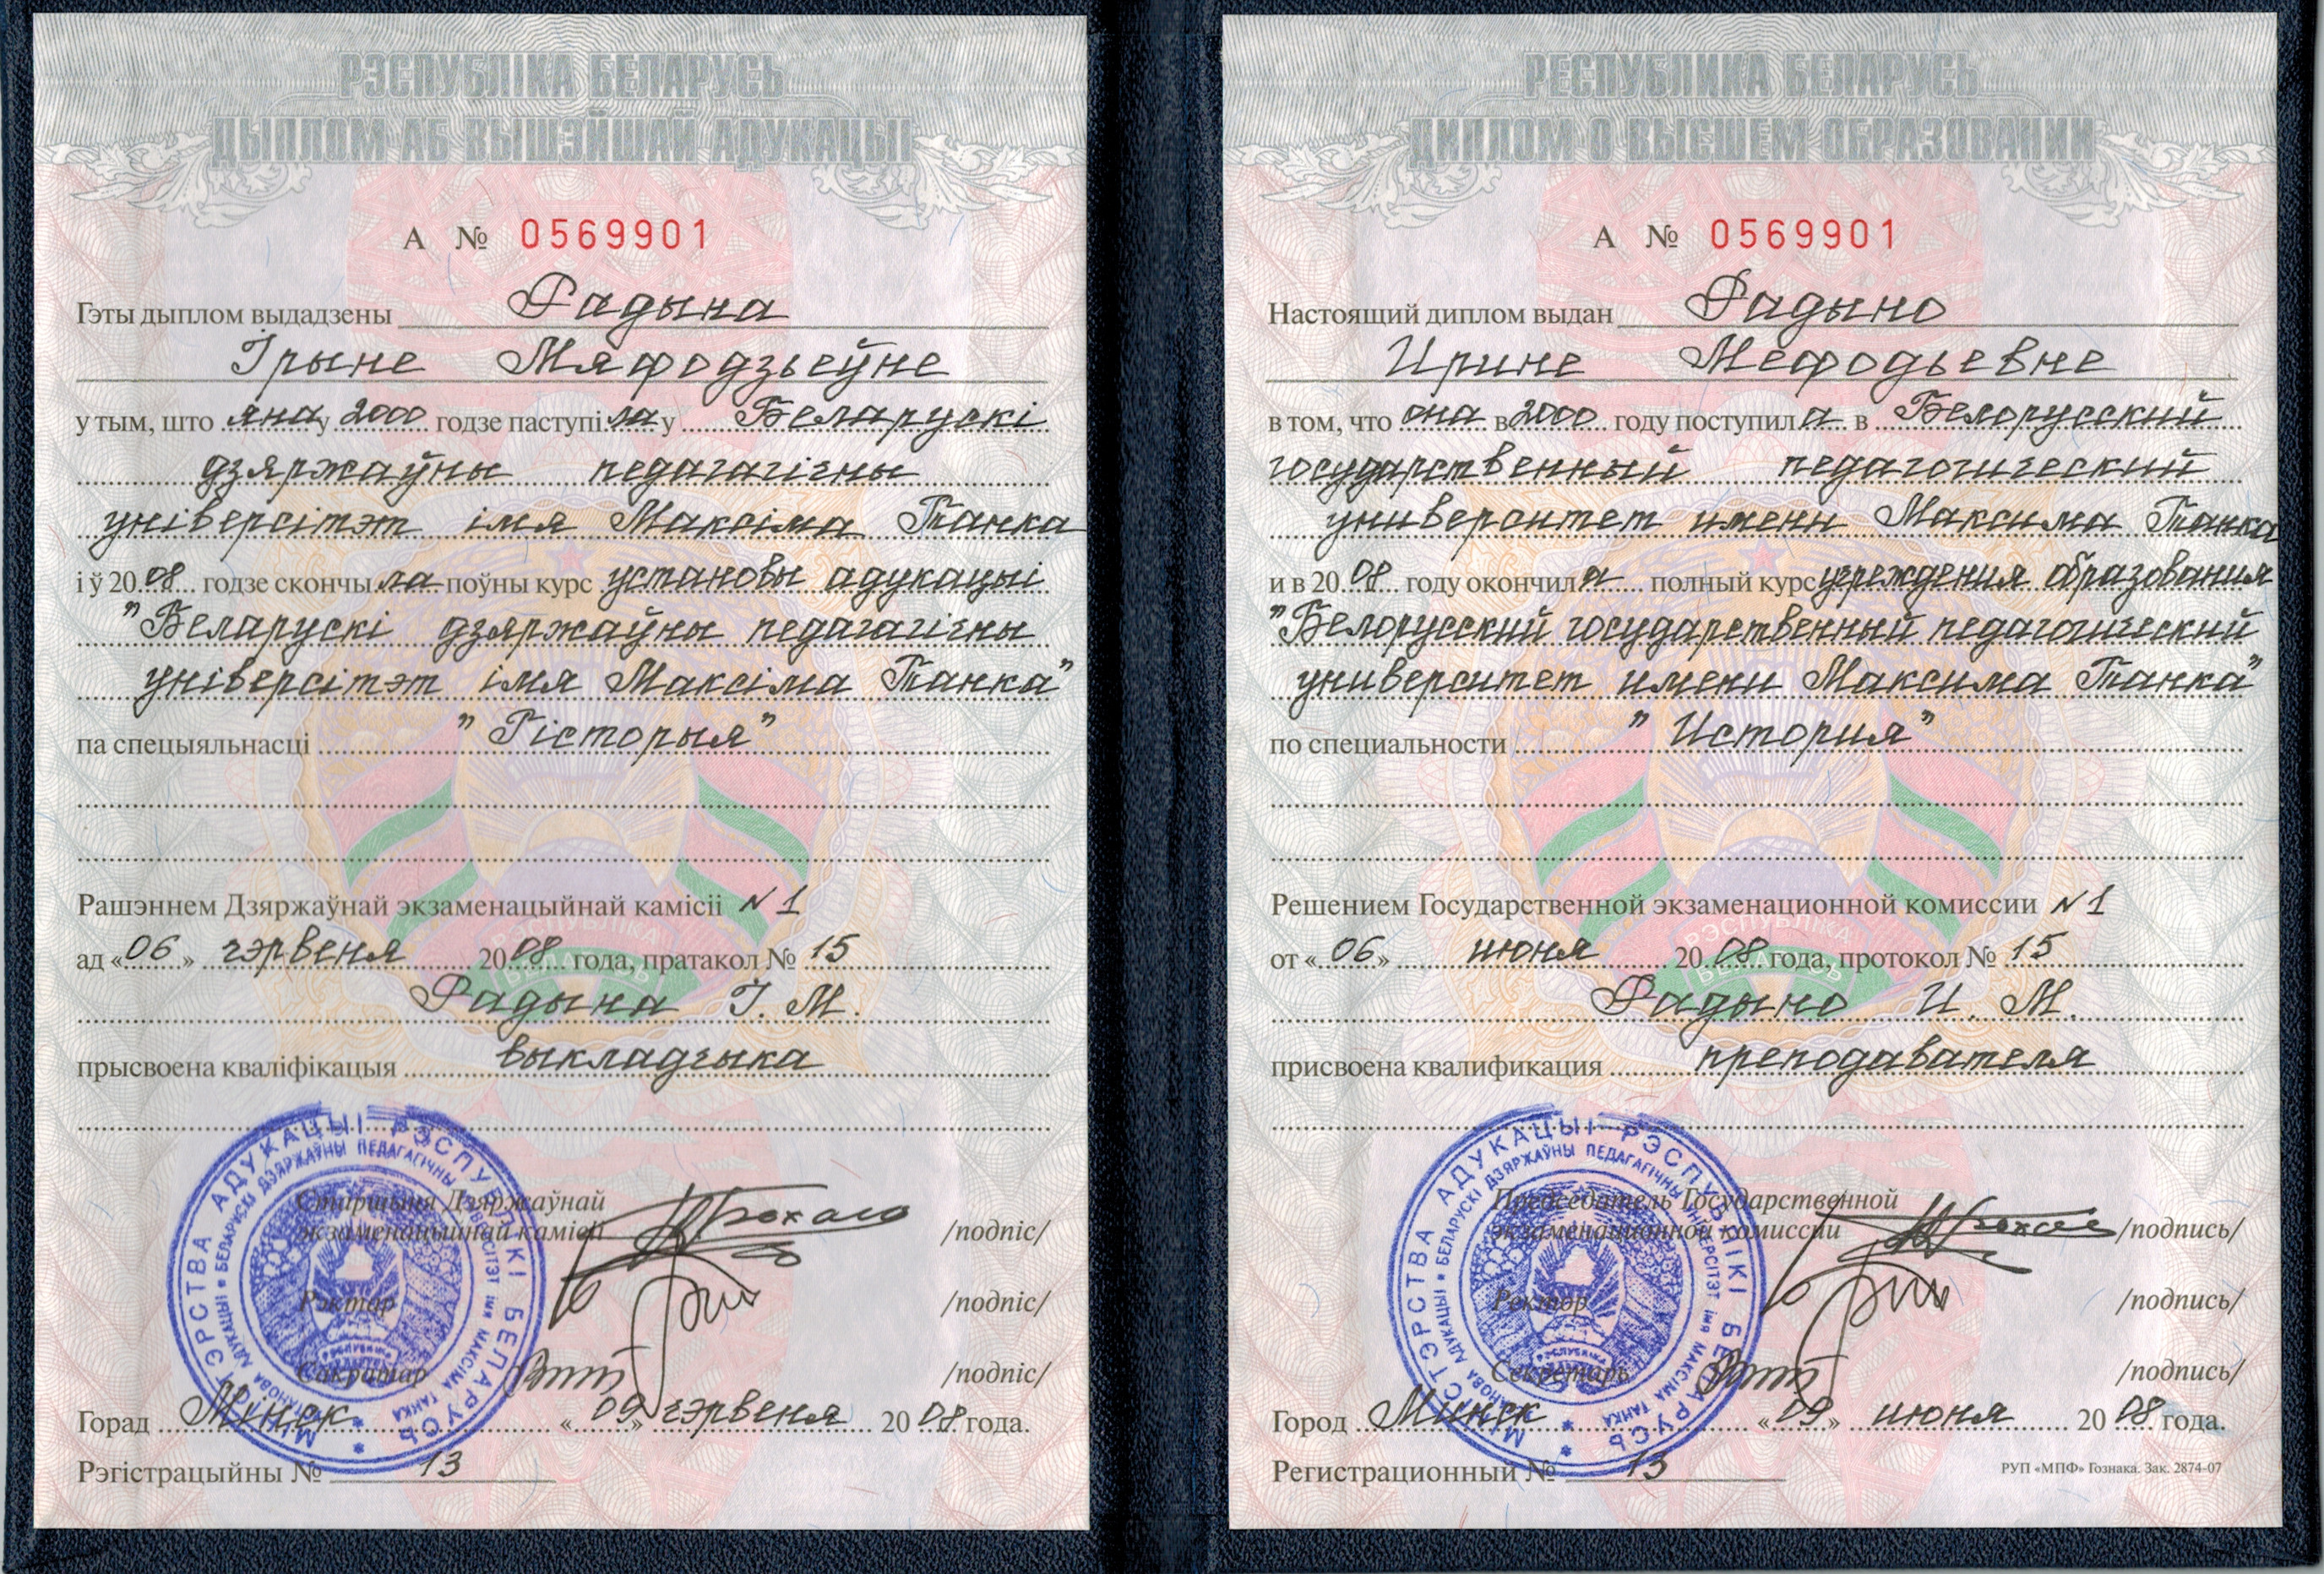 РЭСПУБЛІКА БЕЛАРУСЬ
ДЫПЛОМ АБ ВЫШЭЙШАЙ АДУКАЦЫІ
А № 0569901
Гэты дыплом выдадзены Радына
Ірыне Мяфодзьеўне
у тым, што яна у 2000 годзе паступіла у Беларускі
дзяржаўны педагагічны
універсітэт імя Максіма Танка
і ў 2008 годзе скончыла поўны курс установы адукацыі
"Беларускі дзяржаўны педагагічны
універсітэт імя Максіма Танка"
па спецыяльнасці "Гісторыя"
Рашэннем Дзяржаўнай экзаменацыйнай камісіі N 1
ад «06» чэрвеня 2008 года, пратакол № 15
Радына І. М.
прысвоена кваліфікацыя выкладчыка
Старшыня Дзяржаўнай
экзаменацыйнай камісіі /подпіс/
Рэктар /подпіс/
Сакратар /подпіс/
Горад Мінск «09» чэрвеня 2008 года.
Рэгістрацыйны № 13
МІНІСТЭРСТВА АДУКАЦЫІ РЭСПУБЛІКІ БЕЛАРУСЬ
УСТАНОВА АДУКАЦЫІ БЕЛАРУСКІ ДЗЯРЖАЎНЫ ПЕДАГАГІЧНЫ УНІВЕРСІТЭТ імя МАКСІМА ТАНКА
РЭСПУБЛІКА
БЕЛАРУСЬ
РЕСПУБЛИКА БЕЛАРУСЬ
ДИПЛОМ О ВЫСШЕМ ОБРАЗОВАНИИ
А № 0569901
Настоящий диплом выдан Радыно
Ирине Мефодьевне
в том, что она в 2000 году поступила в Белорусский
государственный педагогический
университет имени Максима Танка
и в 2008 году окончила полный курс учреждения образования
"Белорусский государственный педагогический
университет имени Максима Танка"
по специальности "История"
Решением Государственной экзаменационной комиссии N 1
от «06» июня 2008 года, протокол № 15
Радыно И. М.
присвоена квалификация преподавателя
Председатель Государственной
экзаменационной комиссии /подпись/
Ректор /подпись/
Секретарь /подпись/
Город Минск «09» июня 2008 года.
Регистрационный № 13
РУП «МПФ» Гознака. Зак. 2874-07
МІНІСТЭРСТВА АДУКАЦЫІ РЭСПУБЛІКІ БЕЛАРУСЬ
УСТАНОВА АДУКАЦЫІ БЕЛАРУСКІ ДЗЯРЖАЎНЫ ПЕДАГАГІЧНЫ УНІВЕРСІТЭТ імя МАКСІМА ТАНКА
РЭСПУБЛІКА
БЕЛАРУСЬ